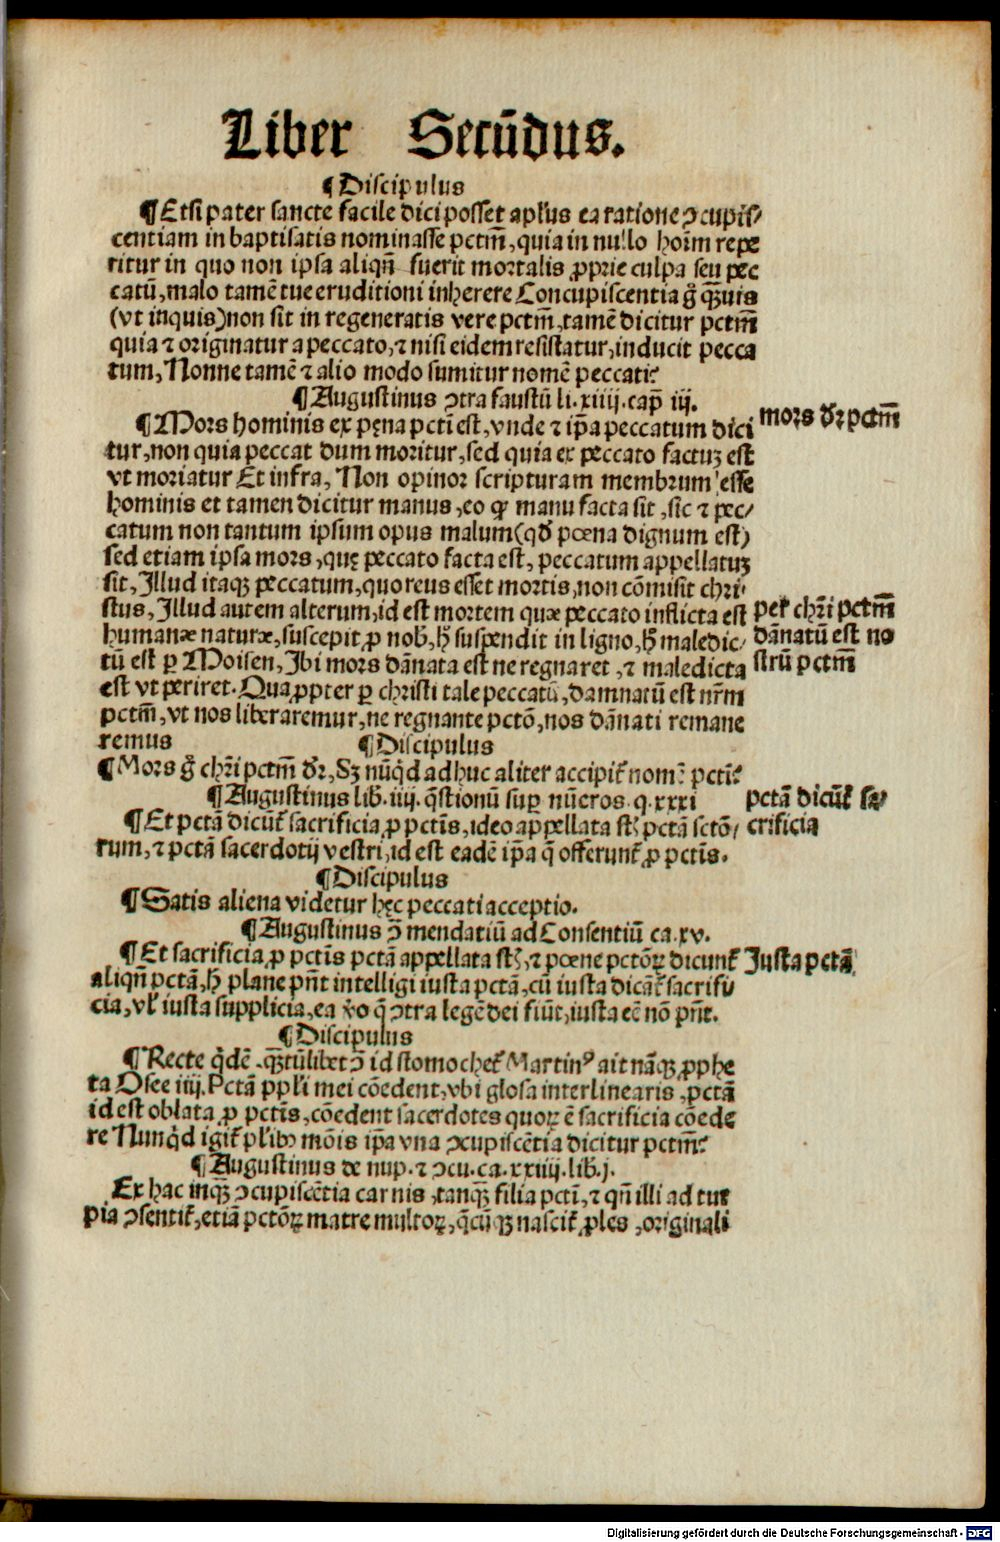 Liber Secūdus.
¶Discipulus
¶Etsi pater sancte facile dici posset apl'us ea ratione ↄcupis⸗
centiam in baptisatis nominasse pctm̄, quia in nullo hoīm repe
ritur in quo non ipsa aliqn̄ fuerit mortalis ꝓprie culpa seu pec
catū, malo tamē tue eruditioni inherere Concupiscentia g̊ quis
(vt inquis) non sit in regeneratis vere pctm̄, tamē dicitur pctm̄
quia ⁊ originatur a peccato, ⁊ nisi eidem resistatur, inducit pecca
tum, Nonne tamē ⁊ alio modo sumitur nomē peccati?
¶Augustinus ↄtra faustū li. xiiii. cap̄ iij.
¶Mors hominis ex pęna pcti est, vnde ⁊ ip̄a peccatum dici
mors dr̄ pctm̄
tur, non quia peccat dum moritur, sed quia ex peccato factuꝫ est
vt moriatur Et infra, Non opinor scripturam membrum esse
hominis et tamen dicitur manus, eo ꝙ manu facta sit, sic ⁊ pec⸗
catum non tantum ipsum opus malum (qd̄ poena dignum est)
sed etiam ipsa mors, quę peccato facta est, peccatum appellatuꝫ
sit, Illud itaqꝫ peccatum, quo reus esset mortis, non cōmisit chri⸗
stus, Illud autem alterum, id est mortem quæ peccato inflicta est
per chr̄i pctm̄
humanæ naturæ, suscepit ꝓ nob̄, h̄ suspendit in ligno, h̄ maledic⸗
dānatū est no
tū est ꝑ Moisen, Ibi mors dānata est ne regnaret, ⁊ maledicta
strū pctm̄
est vt periret. Quaꝓpter ꝑ christi tale peccatū, damnatū est nr̄m
pctm̄, vt nos liberaremur, ne regnante pctō, nos dānati remane
remus ¶Discipulus
¶Mors g̊ chr̄i pctm̄ dr̄, Sꝫ nūqd adhuc aliter accipit̄ nomē pcti?
¶Augustinus lib. iiij. q̄stionū suꝑ nūeros. q. xxxi
pctā dicūt̄ sa⸗
¶Et pctā dicūt̄ sacrificia, ꝓ pctīs, ideo appellata st̄ pctā sctō⸗
crificia
rum, ⁊ pctā sacerdotij vestri, id est eadē ip̄a q̄ offerunt̄ ꝓ pctīs.
¶Discipulus
¶Satis aliena videtur hęc peccati acceptio.
¶Augustinus ↄ̄ mendatiū ad Consentiū ca. xv.
¶Et sacrificia, ꝓ pctīs pctā appellata st̄, ⁊ poene pctōꝝ dicunt̄
Justa pctā
aliqn̄ pctā, h̄ plane pn̄t intelligi iusta pctā, cū iusta dicāt̄ sacrifi
cia, vl' iusta supplicia, ea v̊o q̄ ↄtra legē dei fiūt, iusta eē nō pn̄t.
¶Discipulus
¶Recte qdē. quātūlibet ↄ̄ id stomochet̄ Martin⁹ ait nāqꝫ ꝓphe
ta Osee iiij. Pctā ppl'i mei cōedent, vbi glosa interlinearis, pctā
id est oblata ꝓ pctīs, cōedent sacerdotes quoꝝ ē sacrificia cōede
re Nunqd igit̄ pl'ibꝰ mōis ip̄a vna ↄcupiscētia dicitur pctm̄?
¶Augustinus de nup. ⁊ ↄcu. ca. xxiiij. lib. j.
Ex hac inqꝫ ↄcupiscētia carnis, tanqꝫ filia pcti, ⁊ qn̄ illi ad tur
pia ↄsentit̄, etiā pctōꝝ matre multoꝝ, q̄cūqꝫ nascit̄ ꝓles, originali
Digitalisierung gefördert durch die Deutsche Forschungsgemeinschaft - DFG